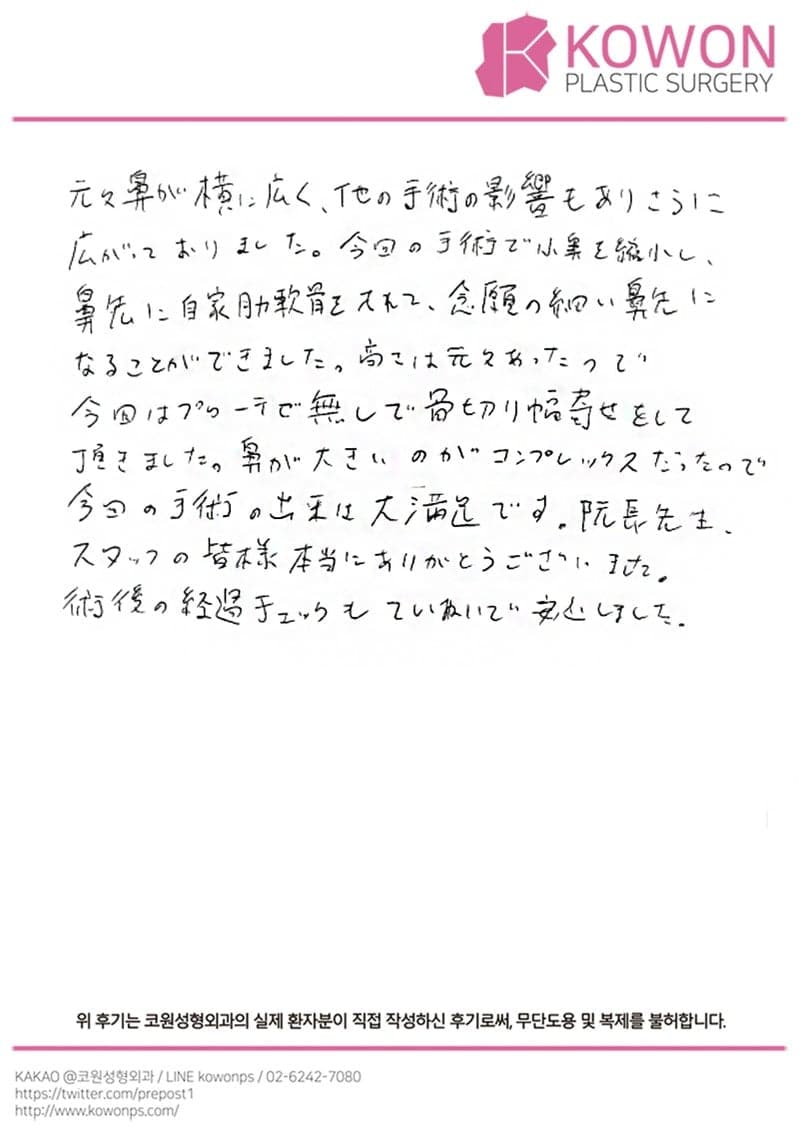 KOWON
PLASTIC SURGERY
元々鼻が横に広く、他の手術の影響もありさらに
広がっておりました。今回の手術で小鼻を縮小し、
鼻先に自家肋軟骨を入れて、念願の細い鼻先に
なることができました。高さは元々あったので
今回はプロテーゼ無しで骨切り幅寄せをして
頂きました。鼻が大きいのがコンプレックスだったので
今回の手術の出来は大満足です。院長先生、
スタッフの皆様本当にありがとうございました。
術後の経過チェックもていねいで安心しました。
위 후기는 코원성형외과의 실제 환자분이 직접 작성하신 후기로써, 무단도용 및 복제를 불허합니다.
KAKAO @코원성형외과 / LINE kowonps / 02-6242-7080
https://twitter.com/prepost1
http://www.kowonps.com/